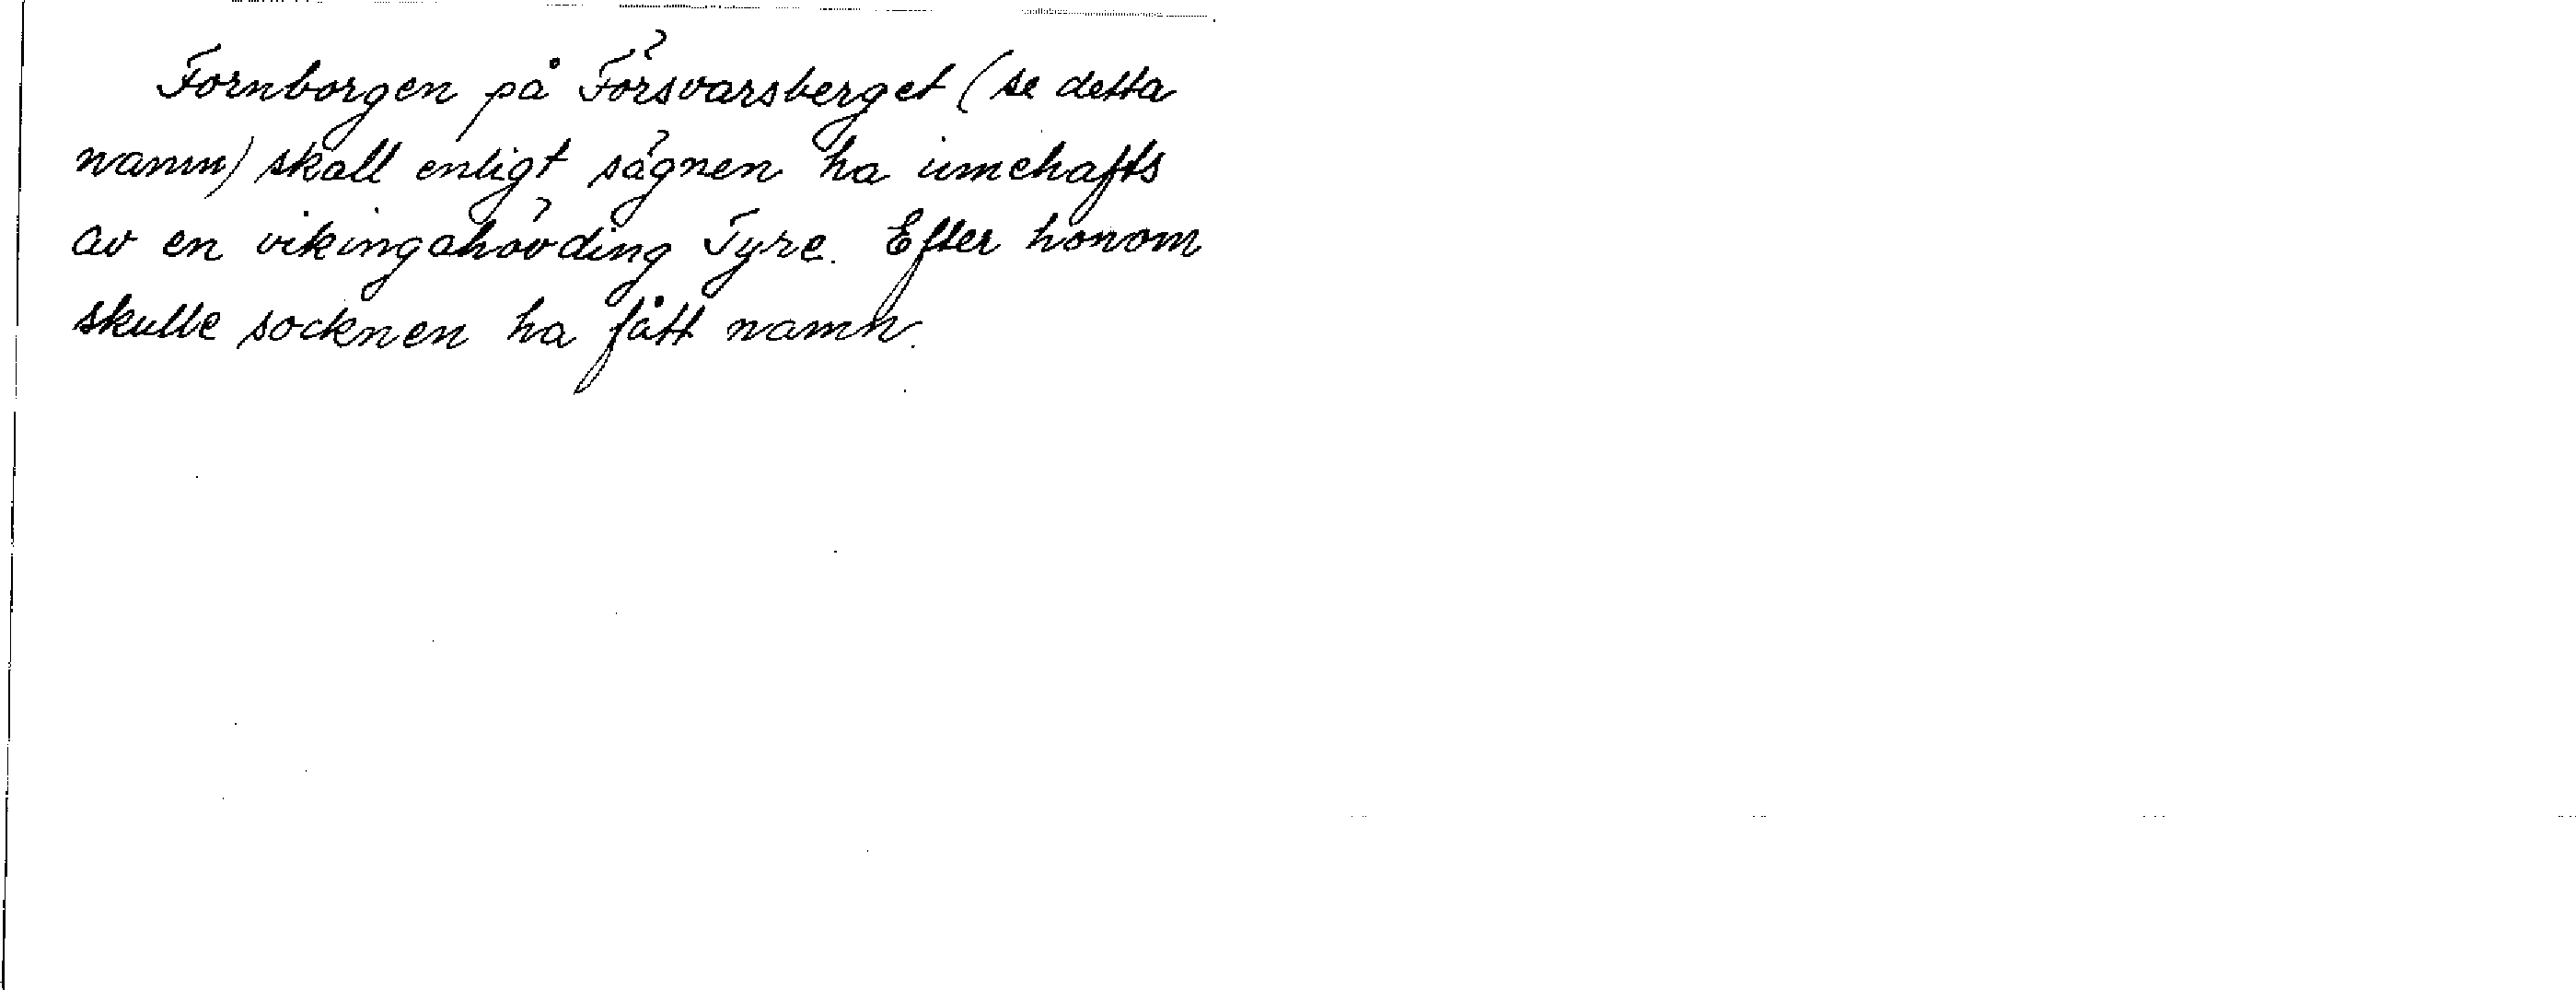 Fornborgen på Försvarsberget (se detta
namn) skall enligt sägnen ha innehafts
av en vikingahövding Tyre. Efter honom
skulle socknen ha fått namn.